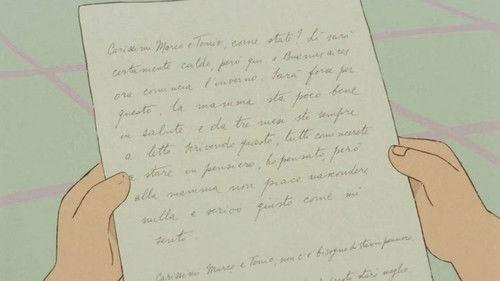 Carissimi Marco e Tonio, come state? Lì sarà
certamente caldo, però qui a Buenos Aires
ora comincia l'inverno. Sarà forse per
questo, la mamma sta poco bene
in salute e da tre mesi sto sempre
a letto. Scrivendo questo, tutti comincerete
a stare in pensiero, ho pensato, però
alla mamma non piace nascondere
nulla e scrivo giusto come mi
sento.
Carissimi Marco e Tonio, non c'è bisogno di stare in pensiero